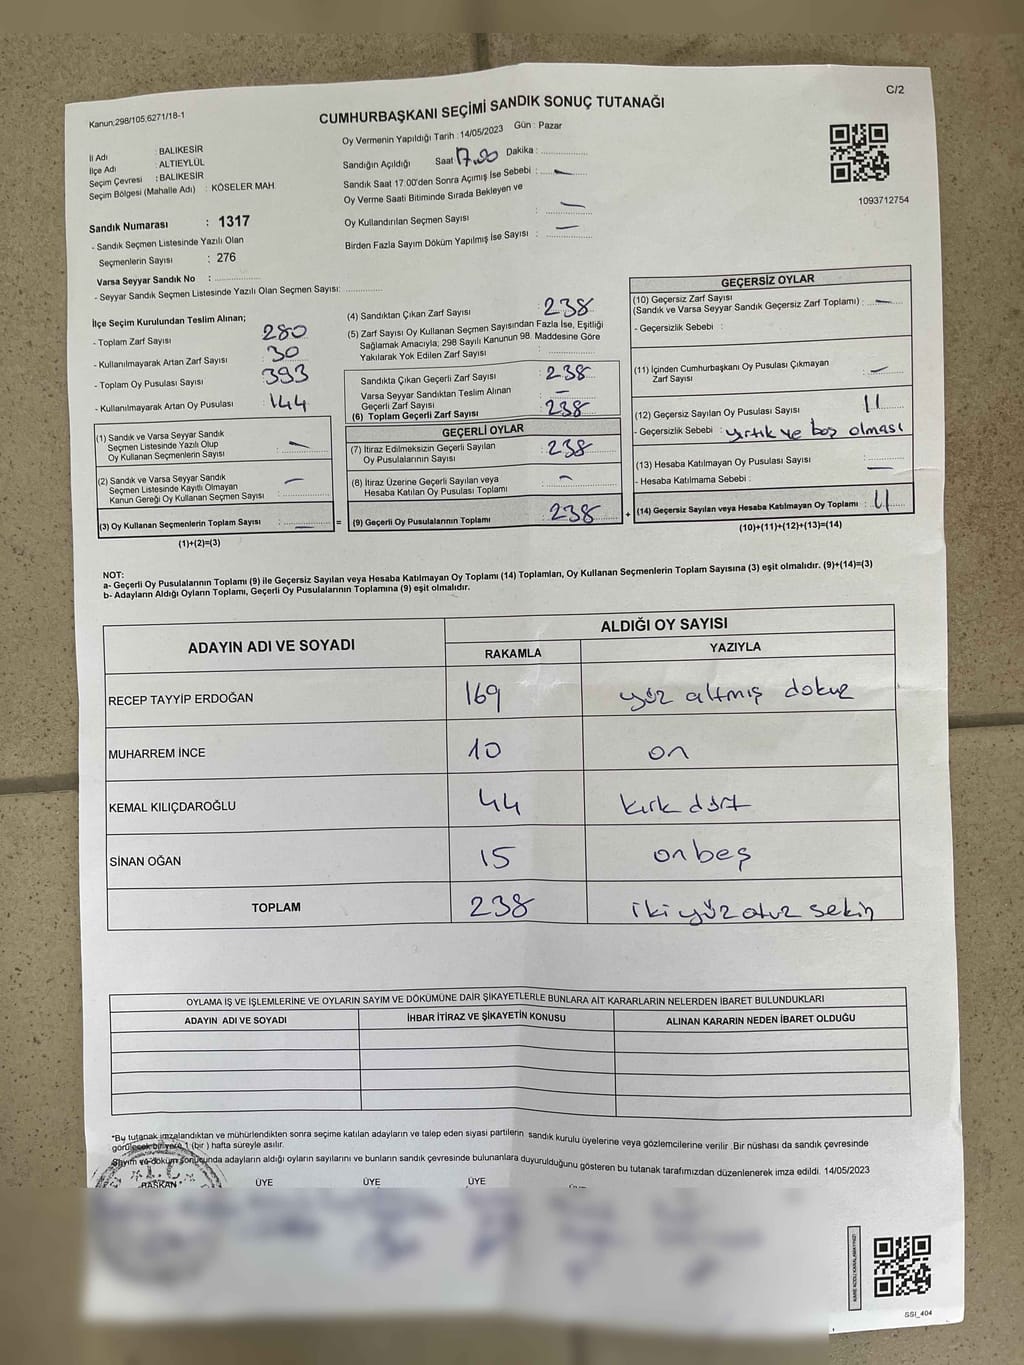 C/2
Kanun;298/105,6271/18-1
CUMHURBAŞKANI SEÇİMİ SANDIK SONUÇ TUTANAĞI
Oy Vermenin Yapıldığı Tarih : 14/05/2023 Gün : Pazar
İl Adı : BALIKESİR
İlçe Adı : ALTIEYLÜL
Seçim Çevresi : BALIKESİR
Seçim Bölgesi (Mahalle Adı) : KÖSELER MAH.
Sandığın Açıldığı Saat 17.00 Dakika :
Sandık Saat 17.00'den Sonra Açımış İse Sebebi : —
Oy Verme Saati Bitiminde Sırada Bekleyen ve
Oy Kullandırılan Seçmen Sayısı : —
Birden Fazla Sayım Döküm Yapılmış İse Sayısı : —
1093712754
Sandık Numarası : 1317
- Sandık Seçmen Listesinde Yazılı Olan
Seçmenlerin Sayısı : 276
Varsa Seyyar Sandık No :
- Seyyar Sandık Seçmen Listesinde Yazılı Olan Seçmen Sayısı:
İlçe Seçim Kurulundan Teslim Alınan;
- Toplam Zarf Sayısı 280
- Kullanılmayarak Artan Zarf Sayısı 30
- Toplam Oy Pusulası Sayısı 393
- Kullanılmayarak Artan Oy Pusulası 144
(1) Sandık ve Varsa Seyyar Sandık
Seçmen Listesinde Yazılı Olup
Oy Kullanan Seçmenlerin Sayısı : —
(2) Sandık ve Varsa Seyyar Sandık
Seçmen Listesinde Kayıtlı Olmayan
Kanun Gereği Oy Kullanan Seçmen Sayısı : —
(3) Oy Kullanan Seçmenlerin Toplam Sayısı : — =
(1)+(2)=(3)
(4) Sandıktan Çıkan Zarf Sayısı : 238
(5) Zarf Sayısı Oy Kullanan Seçmen Sayısından Fazla İse, Eşitliği
Sağlamak Amacıyla; 298 Sayılı Kanunun 98. Maddesine Göre
Yakılarak Yok Edilen Zarf Sayısı :
Sandıkta Çıkan Geçerli Zarf Sayısı : 238
Varsa Seyyar Sandıktan Teslim Alınan
Geçerli Zarf Sayısı : —
(6) Toplam Geçerli Zarf Sayısı : 238
GEÇERLİ OYLAR
(7) İtiraz Edilmeksizin Geçerli Sayılan
Oy Pusulalarının Sayısı : 238
(8) İtiraz Üzerine Geçerli Sayılan veya
Hesaba Katılan Oy Pusulası Toplamı : —
(9) Geçerli Oy Pusulalarının Toplamı : 238 +
GEÇERSİZ OYLAR
(10) Geçersiz Zarf Sayısı
(Sandık ve Varsa Seyyar Sandık Geçersiz Zarf Toplamı) : —
- Geçersizlik Sebebi :
(11) İçinden Cumhurbaşkanı Oy Pusulası Çıkmayan
Zarf Sayısı : —
(12) Geçersiz Sayılan Oy Pusulası Sayısı : 11
- Geçersizlik Sebebi : yırtık ve boş olması
(13) Hesaba Katılmayan Oy Pusulası Sayısı : —
- Hesaba Katılmama Sebebi :
(14) Geçersiz Sayılan veya Hesaba Katılmayan Oy Toplamı : 11
(10)+(11)+(12)+(13)=(14)
NOT:
a- Geçerli Oy Pusulalarının Toplamı (9) ile Geçersiz Sayılan veya Hesaba Katılmayan Oy Toplamı (14) Toplamları, Oy Kullanan Seçmenlerin Toplam Sayısına (3) eşit olmalıdır. (9)+(14)=(3)
b- Adayların Aldığı Oyların Toplamı, Geçerli Oy Pusulalarının Toplamına (9) eşit olmalıdır.
ADAYIN ADI VE SOYADI ALDIĞI OY SAYISI
RAKAMLA YAZIYLA
RECEP TAYYİP ERDOĞAN 169 yüz altmış dokuz
MUHARREM İNCE 10 on
KEMAL KILIÇDAROĞLU 44 kırk dört
SİNAN OĞAN 15 on beş
TOPLAM 238 iki yüz otuz sekiz
OYLAMA İŞ VE İŞLEMLERİNE VE OYLARIN SAYIM VE DÖKÜMÜNE DAİR ŞİKAYETLERLE BUNLARA AİT KARARLARIN NELERDEN İBARET BULUNDUKLARI
ADAYIN ADI VE SOYADI İHBAR İTİRAZ VE ŞİKAYETİN KONUSU ALINAN KARARIN NEDEN İBARET OLDUĞU
*Bu tutanak imzalandıktan ve mühürlendikten sonra seçime katılan adayların ve talep eden siyasi partilerin sandık kurulu üyelerine veya gözlemcilerine verilir .Bir nüshası da sandık çevresinde
görülecek bir yere 1 (bir ) hafta süreyle asılır.
Sayım ve döküm sonucunda adayların aldığı oyların sayılarını ve bunların sandık çevresinde bulunanlara duyurulduğunu gösteren bu tutanak tarafımızdan düzenlenerek imza edildi. 14/05/2023
T.C.
BAŞKAN ÜYE ÜYE ÜYE
SSI_404